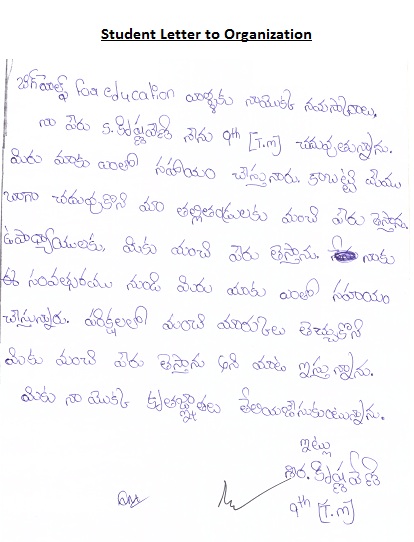 Student Letter to Organization
for education వార్ళకు నాయొక్క నమస్కారాలు.
నా పేరు S. కృష్ణవేణి నేను 9th [T.m] చదువుతున్నాను.
మీరు మాకు ఎంతో సహాయం చేస్తునారు. కాబట్టి మేము
బాగా చదువుకొని మా తల్లితండ్రులకు మంచి పేరు తెస్తాను.
ఉపాధ్యాయులకు, మీకు మంచి పేరు తెస్తాను. నాకు
ఈ సంవత్సరము నుండి మీరు మాకు ఎంతో సహాయం
చేస్తున్నారు. పరీక్షలలో మంచి మార్కులు తెచ్చుకొని
మీకు మంచి పేరు తెస్తాను అని మాట ఇస్తున్నాను.
మీకు నా యొక్క కృతజ్ఞతలు తెలియజేసుకుంటున్నాను.
ఇట్లు
కృష్ణవేణి
9th [T.m]